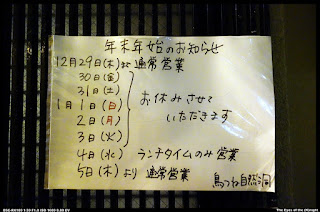 年末年始のお知らせ
12月29日(木)まで 通常営業
30日(金)
31日(土)
1月1日(日)
2日(月)
3日(火)
お休みさせて
いただきます
4日(水) ランチタイムのみ営業
5日(木)より 通常営業
鳥つね自然洞
DSC-RX100 1/30 F1.8 ISO 1600 0.00 EV
The Eyes of the